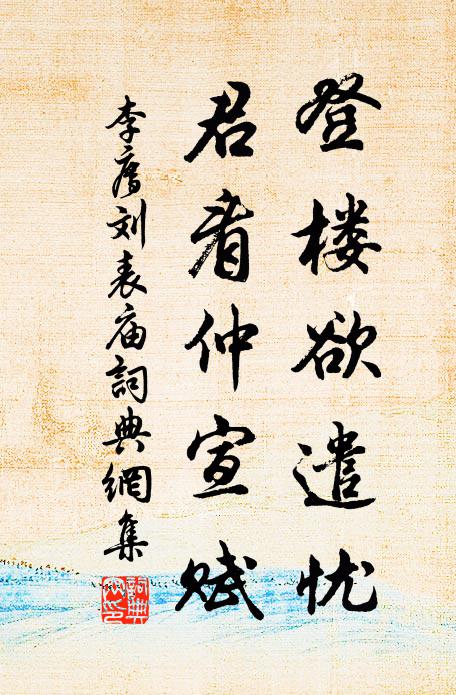 登楼欲遣忧
君看仲宣赋
李廌刘表庙詞典網集